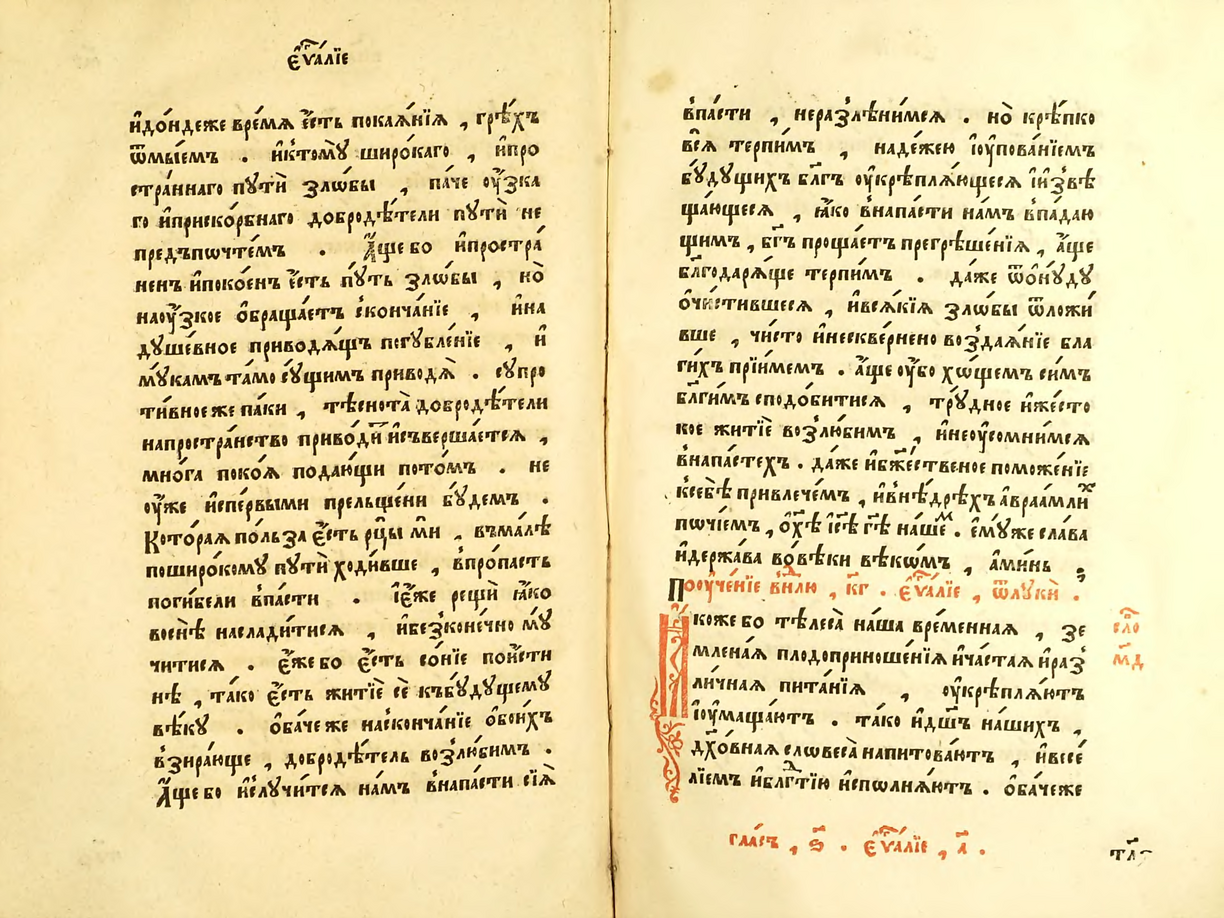 є҆ѵⷢ҇а́лїе
и҆до́ндеже вре́мѧ є҆́сть покаѧ́нїѧ , грѣ́хъ
ѿмы́емъ . и҆ктомꙋ̀ широ́каго , и҆про
стра́ннаго пꙋтѝ злѡ́бы , па́че ᲂу҆́зка
го и҆приско́рбнаго добродѣ́тели пꙋтѝ не
предъпѡчте́мъ . А҆́ще бо и҆простра́
ненъ и҆поко́енъ є҆́сть пꙋ́ть злѡ́бы , но̀
наᲂу҆́зкое ѻ҆браща́етъ сконча́нїе , и҆на
дꙋше́вное приводѧ́щъ погꙋбле́нїе , и҆
мꙋ́камъ та́мо сꙋ́щимъ приводѧ̀ . сꙋпро
ти́вное же па́ки , тѣснота̀ добродѣ́тели
напростра́нство приво́дитъ и҆съверша́етсѧ ,
мно́га поко́ѧ подаю́щи пото́мъ . не
ᲂу҆́же и҆спе́рвыми прельще́ни бꙋ́демъ .
Кото́раѧ по́льза є҆́сть рцы́ мѝ , въма́лѣ
поширо́комꙋ пꙋтѝ ходи́вше , впро́пасть
поги́бели впа́сти . І҆є҆́же рещѝ ꙗ҆́ко
восн́ѣ наслади́тисѧ , и҆безконе́чно мꙋ́
читисѧ . є҆́же бо є҆́сть со́нїе пои́сти
нѣ , та́ко є҆́сть житїѐ сѐ къбꙋ́дꙋщемꙋ
вѣ́кꙋ . ѻ҆ба́че же насконча́нїе ѻ҆бои́хъ
взира́юще , добродѣ́тель возлю́бимъ .
А҆́ще бо и҆слꙋчи́тсѧ на́мъ внапа́сти сїѧ̀
впа́сти , неразлѣни́мсѧ . но̀ крѣ́пко
всѧ̀ терпи́мъ , наде́жею і҆ᲂу҆пова́нїемъ
бꙋ́дꙋщихъ бл҃гъ ᲂу҆крѣплѧ́ющесѧ і҆и҆звѣ
ща́ющесѧ , ꙗ҆́ко внапа́сти на́мъ впа́даю
щимъ , бг҃ъ проща́етъ прегрѣше́нїѧ , а҆́ще
бл҃годарѧ́ще терпи́мъ . да́же ѿѻ҆нꙋ́дꙋ
ѻ҆чи́стившесѧ , и҆всѧ́кїѧ злѡ́бы ѿложи́
вше , чи́сто и҆нескве́рнено воздаѧ́нїе бла
ги́хъ прїи́мемъ . а҆́ще ᲂу҆́бо хѡ́щемъ си́мъ
бл҃ги́мъ сподо́битисѧ , трꙋ́дное и҆же́сто
кое житїѐ возлю́бимъ , и҆неᲂу҆сомни́мсѧ
внапа́стехъ . да́же и҆бж҃е́ственое поможе́нїе
ксебѣ̀ привлече́мъ , и҆внѣ́дрѣхъ а҆враа́млихъ
пѡчі́емъ , ѻ҆хⷭ҇ѣ̀ і҆и҃сѣ гдⷭ҇ѣ на́шемъ . є҆мꙋ́же сла́ва
и҆держа́ва вовѣ́ки вѣкѡ́мъ , а҆ми́нь .
Поᲂу҆че́нїе внⷣлю , к҃г . є҆ѵⷢ҇а́лїе , ѿлꙋкѝ .
Ꙗ҆коже бо тѣлеса̀ на́ша вре́меннаѧ , зе
сло́
мле́наѧ плодоприноше́нїѧ и҆ча́стаѧ и҆раз̾
м҃д
ли́чнаѧ пита́нїѧ , ᲂу҆крѣплѧ́ютъ
і҆ᲂу҆маща́ютъ . та́ко и҆дш҃ъ на́шихъ ,
дх҃о́внаѧ словеса̀ напитова́ютъ , и҆весе́
лїемъ и҆блгⷣтїю и҆сполнѧ́ютъ . ѻ҆ба́че же
гла́съ , ѕ҃ . є҆ѵⷢ҇а́лїе , а҃ .